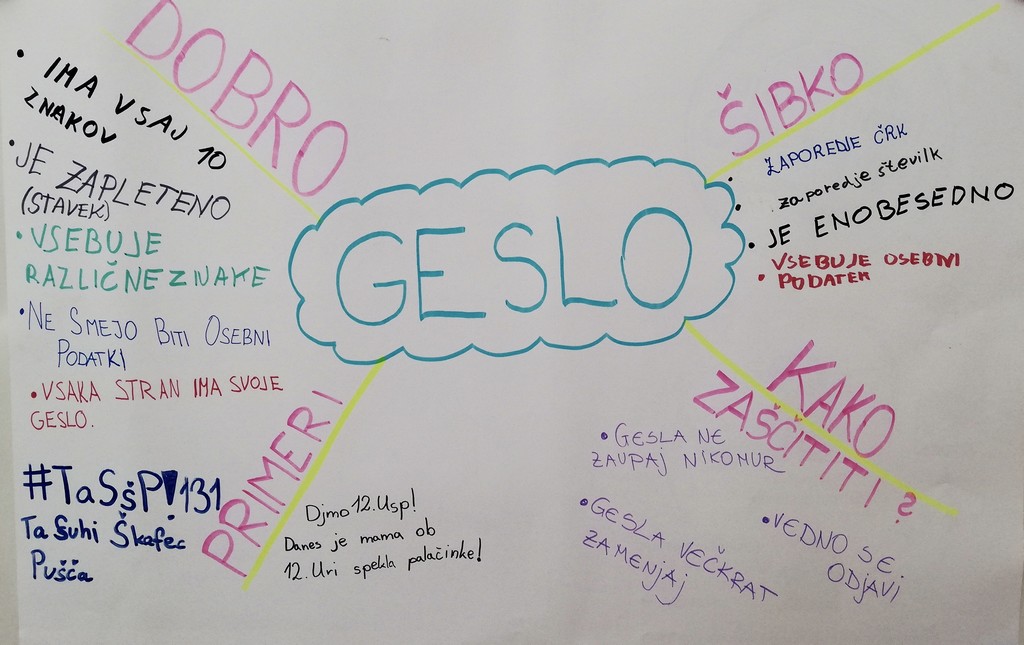 GESLO
DOBRO
• IMA VSAJ 10
ZNAKOV
• JE ZAPLETENO
(STAVEK)
• VSEBUJE
RAZLIČNE ZNAKE
• NE SMEJO BITI OSEBNI
PODATKI
• VSAKA STRAN IMA SVOJE
GESLO.
ŠIBKO
• ZAPOREDJE ČRK
• zaporedje številk
• JE ENOBESEDNO
• VSEBUJE OSEBNI
PODATEK
PRIMERI
#TaSšP!131
Ta Suhi Škafec
Pušča
Djmo12.Usp!
Danes je mama ob
12.Uri spekla palačinke!
KAKO
ZAŠČITITI?
• GESLA NE
ZAUPAJ NIKOMUR
• GESLA VEČKRAT
ZAMENJAJ
• VEDNO SE
ODJAVI